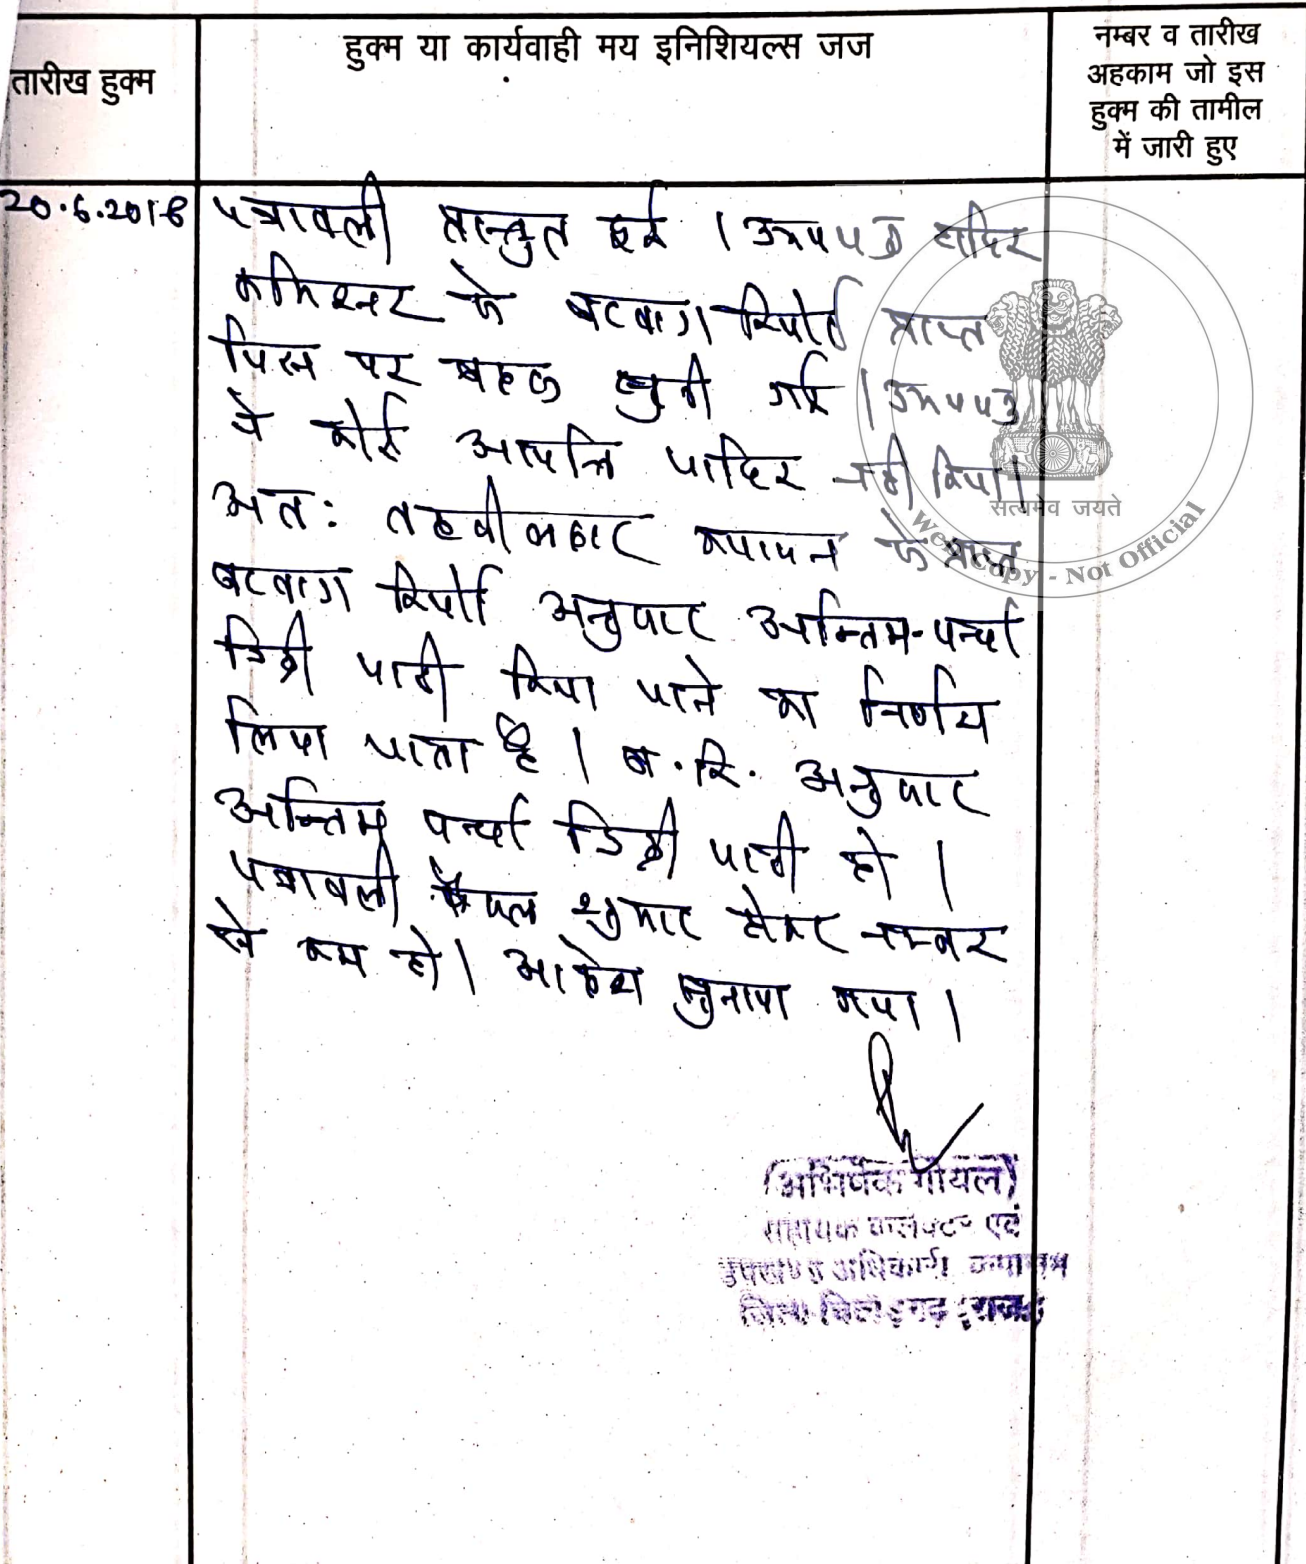 तारीख हुक्म
हुक्म या कार्यवाही मय इनिशियल्स जज
नम्बर व तारीख
अहकाम जो इस
हुक्म की तामील
में जारी हुए
20.6.2018
पत्रावली प्रस्तुत हुई । उभयपक्ष हाजिर
कमिश्नर से बटवारा रिपोर्ट प्राप्त
जिस पर बहस सुनी गई । उभयपक्ष
ने कोई आपत्ति जाहिर नही किया ।
अतः तहसीलदार कपासन से प्राप्त
बटवारा रिपोर्ट अनुसार अन्तिम पर्चा
डिक्री जारी किया जाने का निर्णय
लिया जाता है । ब.रि. अनुसार
अन्तिम पर्चा डिक्री जारी हो ।
पत्रावली फैसल शुमार होकर नम्बर
से कम हो । आदेश सुनाया गया ।
सत्यमेव जयते
Web Copy - Not Official
(अभिषेक गोयल)
सहायक कलक्टर एवं
उपखण्ड अधिकारी कपासन
जिला चित्तौड़गढ़ (राज०)